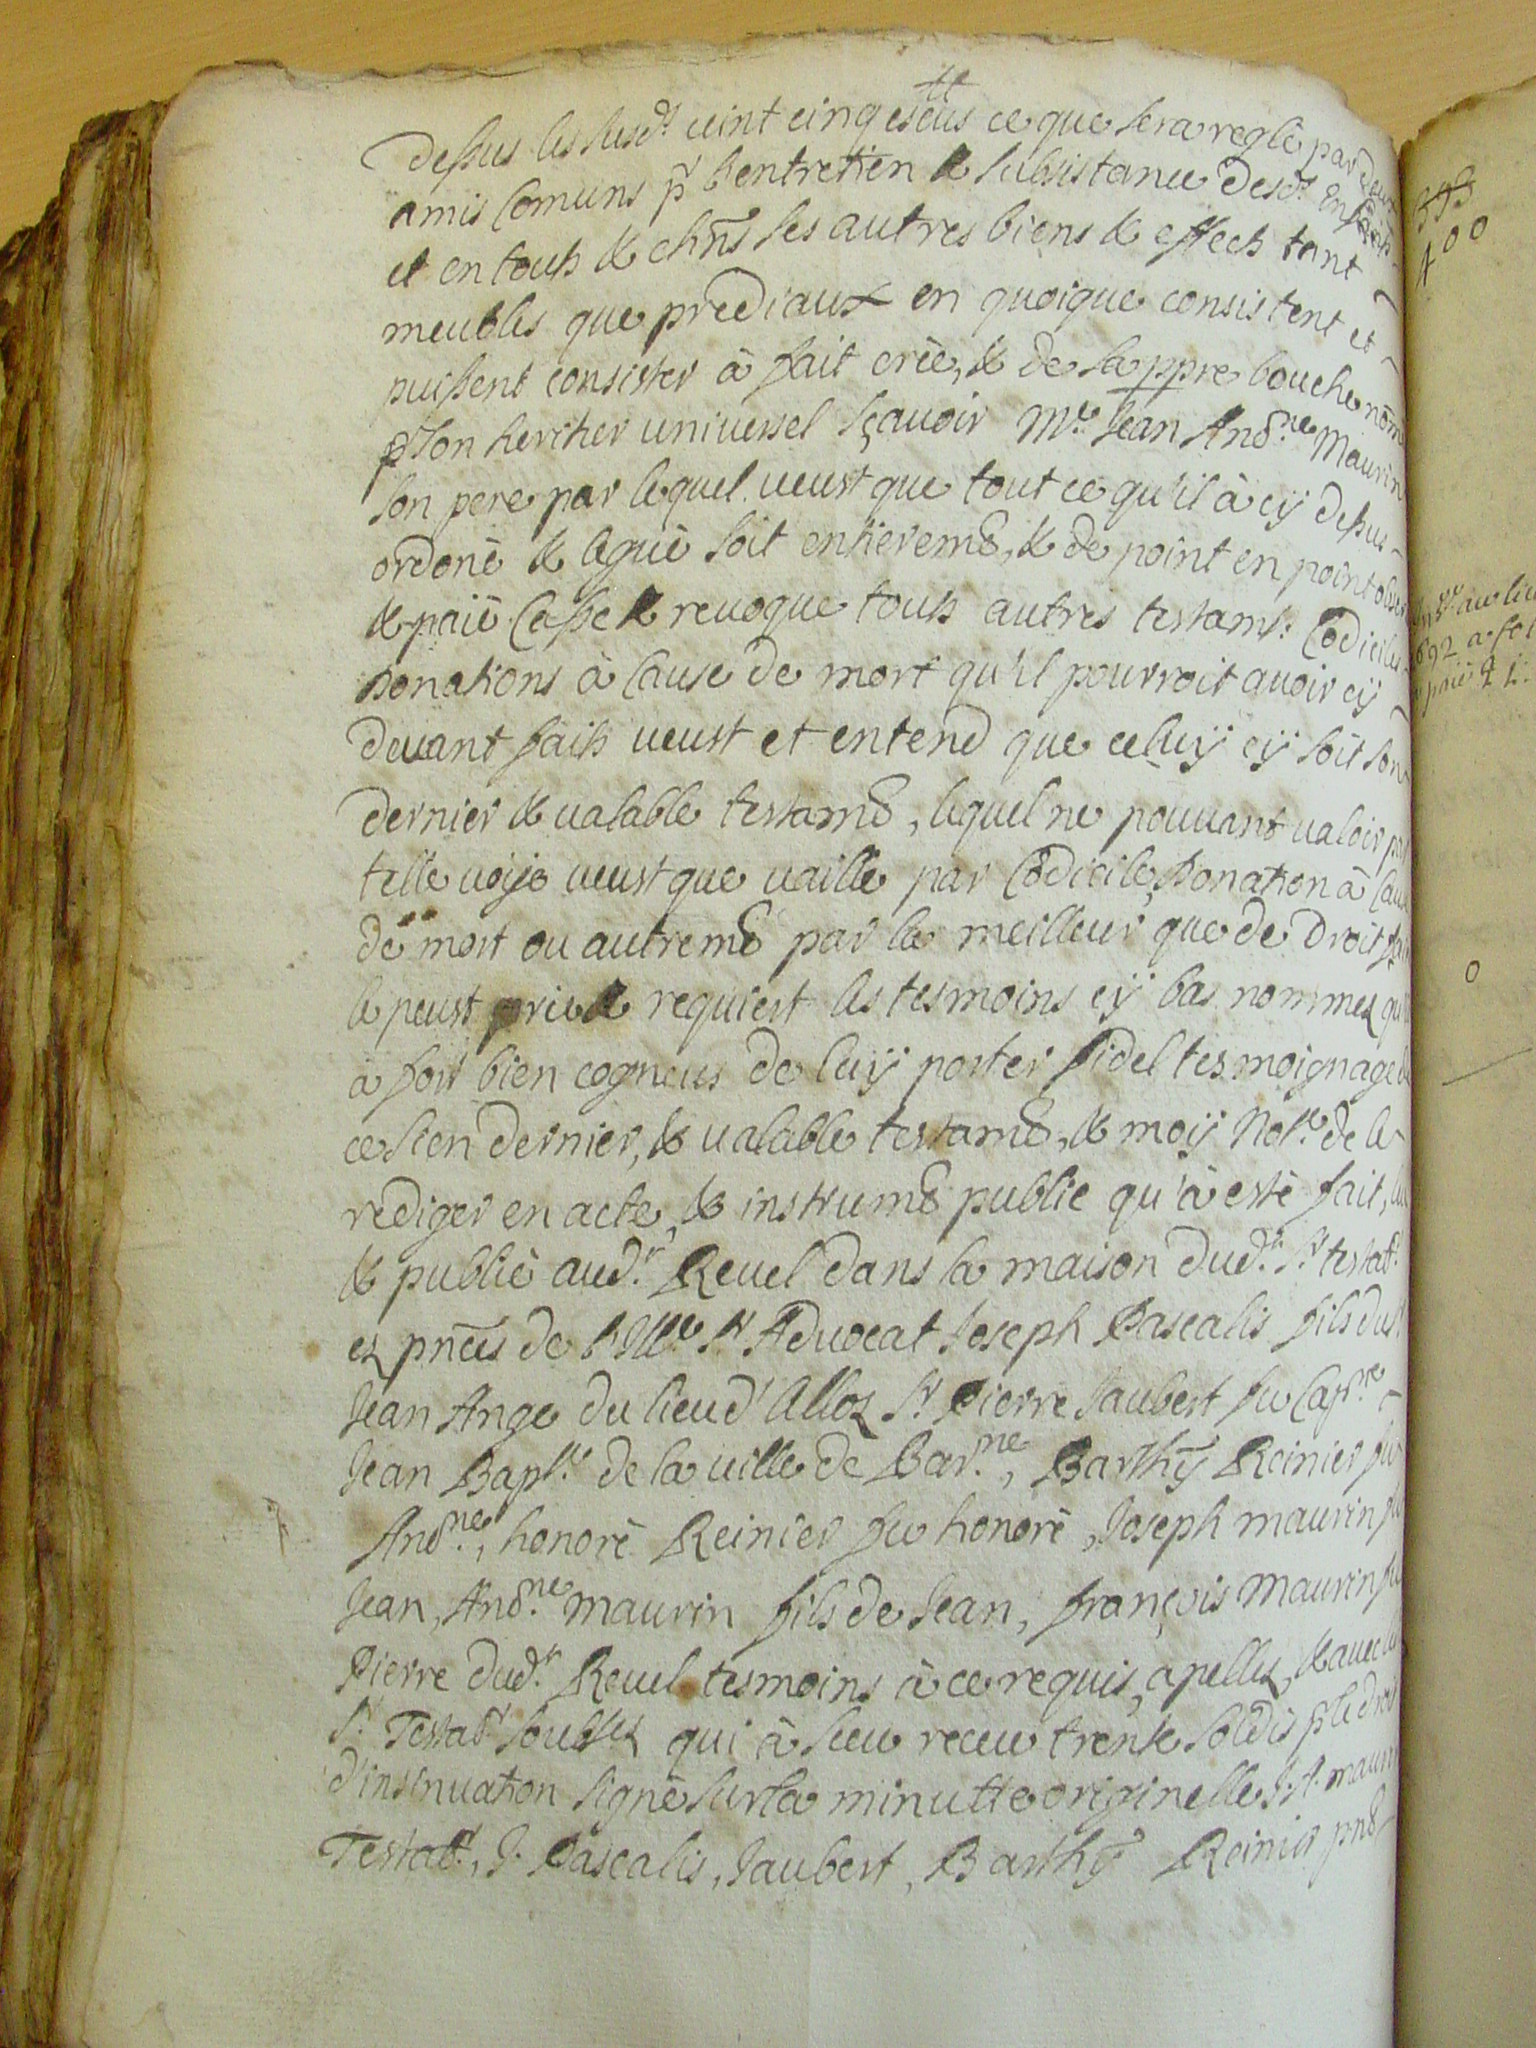 dessus les susd.ts vint cinq escus ce que sera reglé par deux
amis Comuns p.r l'entretien & subsistance desd.ts Enfants
et en touts & chūns ses autres biens & effects tant
meubles que prediaux en quoique consistent et
puissent consister à fait crée, & de sa ppre bouche nōm
p.r son heritier universel sçavoir M.e Jean Anth.ne Maurin
son pere par lequel veust que tout ce qu'il à cÿ dessus
ordoné & legué soit entierem.t, & de point en point observé
& paié Casse & revoque touts autres testam.ts Codiciles
donations à Cause de mort qu'il pourroit avoir cÿ
devant faits veust et entend que celuÿ cÿ soit son
dernier & valable testam.t, lequel ne pouvant valoir par
telle voÿe veust que vaille par Codicile, donation à Cause
de mort ou autrem.t par le meilleur que de droit
le peust prie & requiert les tesmoins cÿ bas nommez qu'il
à fort bien cogneus de luÿ porter fidel tesmoignage de
ce sien dernier, & valable testam.t, & moÿ Not.re de le
rediger en acte, & instrum.t public qu'à esté fait, leu
& publié aud.t Revel dans la maison dud.t S.r testat.r
ez pn̄ces de l'Ill.e S.r Advocat Joseph Pascalis fils du S.r
Jean Ange du lieu d'Alloz S.r Pierre Jaubert fu Cap.ne
Jean Bap.te de la ville de Bar.ne, Barthÿ Reinier fu
Anth.ne, honoré Reinier fu honoré, Joseph maurin fu
Jean, Anth.ne maurin fils de Jean, françois Maurin fu
Pierre dud.t Revel tesmoins à ce requis, apellez, & avec led.t
S.r Testat.r soubssez qui à sceu receu trente soldis p.r le droit
d'insinuation signé sur la minutte originelle J. A. maurin
Testat.r, J. Pascalis, Jaubert, Barthÿ Reinier pn̄t
393
400
692 a fol
0